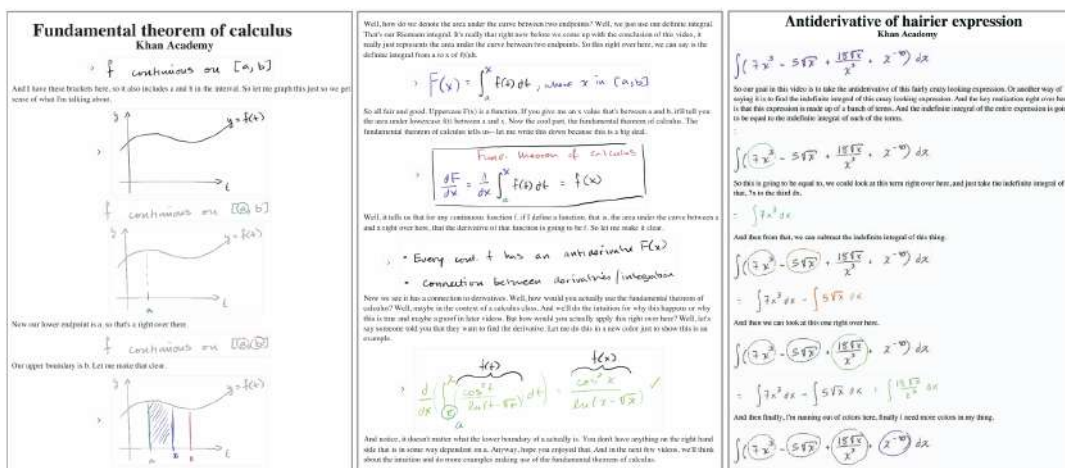 Fundamental theorem of calculus
Khan Academy
f continuous on [a,b]
And I have these brackets here, so it also includes a and b in the interval. So let me graph this just so we get
sense of what I'm talking about.
y
y=f(t)
t
f continuous on [a,b]
y
y=f(t)
a
t
Now our lower endpoint is a, so that's a right over there.
f continuous on [a,b]
Our upper boundary is b. Let me make that clear.
y
y=f(t)
a
x
b
t
Well, how do we denote the area under the curve between two endpoints? Well, we just use our definite integral.
That's our Riemann integral. It's really that right now before we come up with the conclusion of this video, it
really just represents the area under the curve between two endpoints. So this right over here, we can say is the
definite integral from a to x of f(t)dt.
F(x) = ∫ₐˣ f(t) dt, where x in [a,b]
So all fair and good. Uppercase F(x) is a function. If you give me an x value that's between a and b, it'll tell you
the area under lowercase f(t) between a and x. Now the cool part, the fundamental theorem of calculus. The
fundamental theorem of calculus tells us-- let me write this down because this is a big deal.
Fund. theorem of calculus
dF/dx = d/dx ∫ₐˣ f(t) dt = f(x)
Well, it tells us that for any continuous function f, if I define a function, that is, the area under the curve between a
and x right over here, that the derivative of that function is going to be f. So let me make it clear.
• Every cont. f has an antiderivative F(x)
• connection between derivatives/integration
Now we see it has a connection to derivatives. Well, how would you actually use the fundamental theorem of
calculus? Well, maybe in the context of a calculus class. And we'll do the intuition for why this happens or why
this is true and maybe a proof in later videos. But how would you actually apply this right over here? Well, let's
say someone told you that they want to find the derivative. Let me do this in a new color just to show this is an
example.
f(t) f(x)
d/dx (∫ cos²t/ln(t-√t) dt) = cos²x/ln(x-√x) ✓
a
And notice, it doesn't matter what the lower boundary of a actually is. You don't have anything on the right hand
side that is in some way dependent on a. Anyway, hope you enjoyed that. And in the next few videos, we'll think
about the intuition and do more examples making use of the fundamental theorem of calculus.
Antiderivative of hairier expression
Khan Academy
So our goal in this video is to take the antiderivative of this fairly crazy looking expression. Or another way of
saying it is to find the indefinite integral of this crazy looking expression. And the key realization right over here
is that this expression is made up of a bunch of terms. And the indefinite integral of the entire expression is going
to be equal to the indefinite integral of each of the terms.
So this is going to be equal to, we could look at this term right over here, and just take the indefinite integral of
that, 7x to the third dx.
= ∫7x³ dx
And then from that, we can subtract the indefinite integral of this thing.
= ∫7x³ dx - ∫5√x dx
And then we can look at this one right over here.
And then finally, I'm running out of colors here, finally I need more colors in my thing.